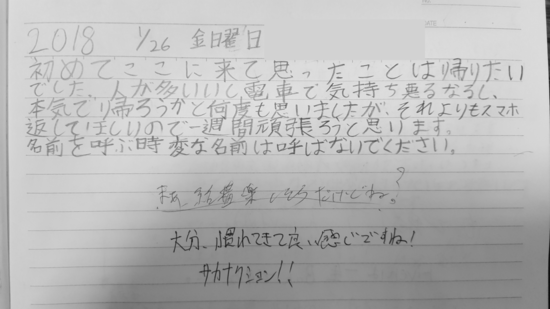 2018 1/26 金曜日
初めてここに来て思ったことは帰りたい
でした。人が多いいし電車で気持ち悪るなるし、
本気で帰ろうかと何度も思いましたが、それよりもスマホ
返してほしいので一週間頑張ろうと思います。
名前を呼ぶ時変な名前は呼ばないでください。
結構楽しそうだけどね?
大分、慣れてきて良い感じですね!
サカナクション!!